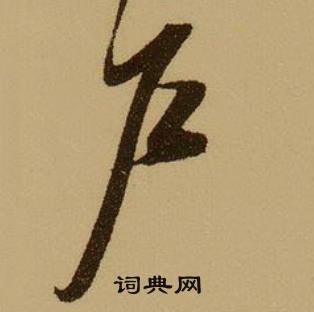 户
词典网